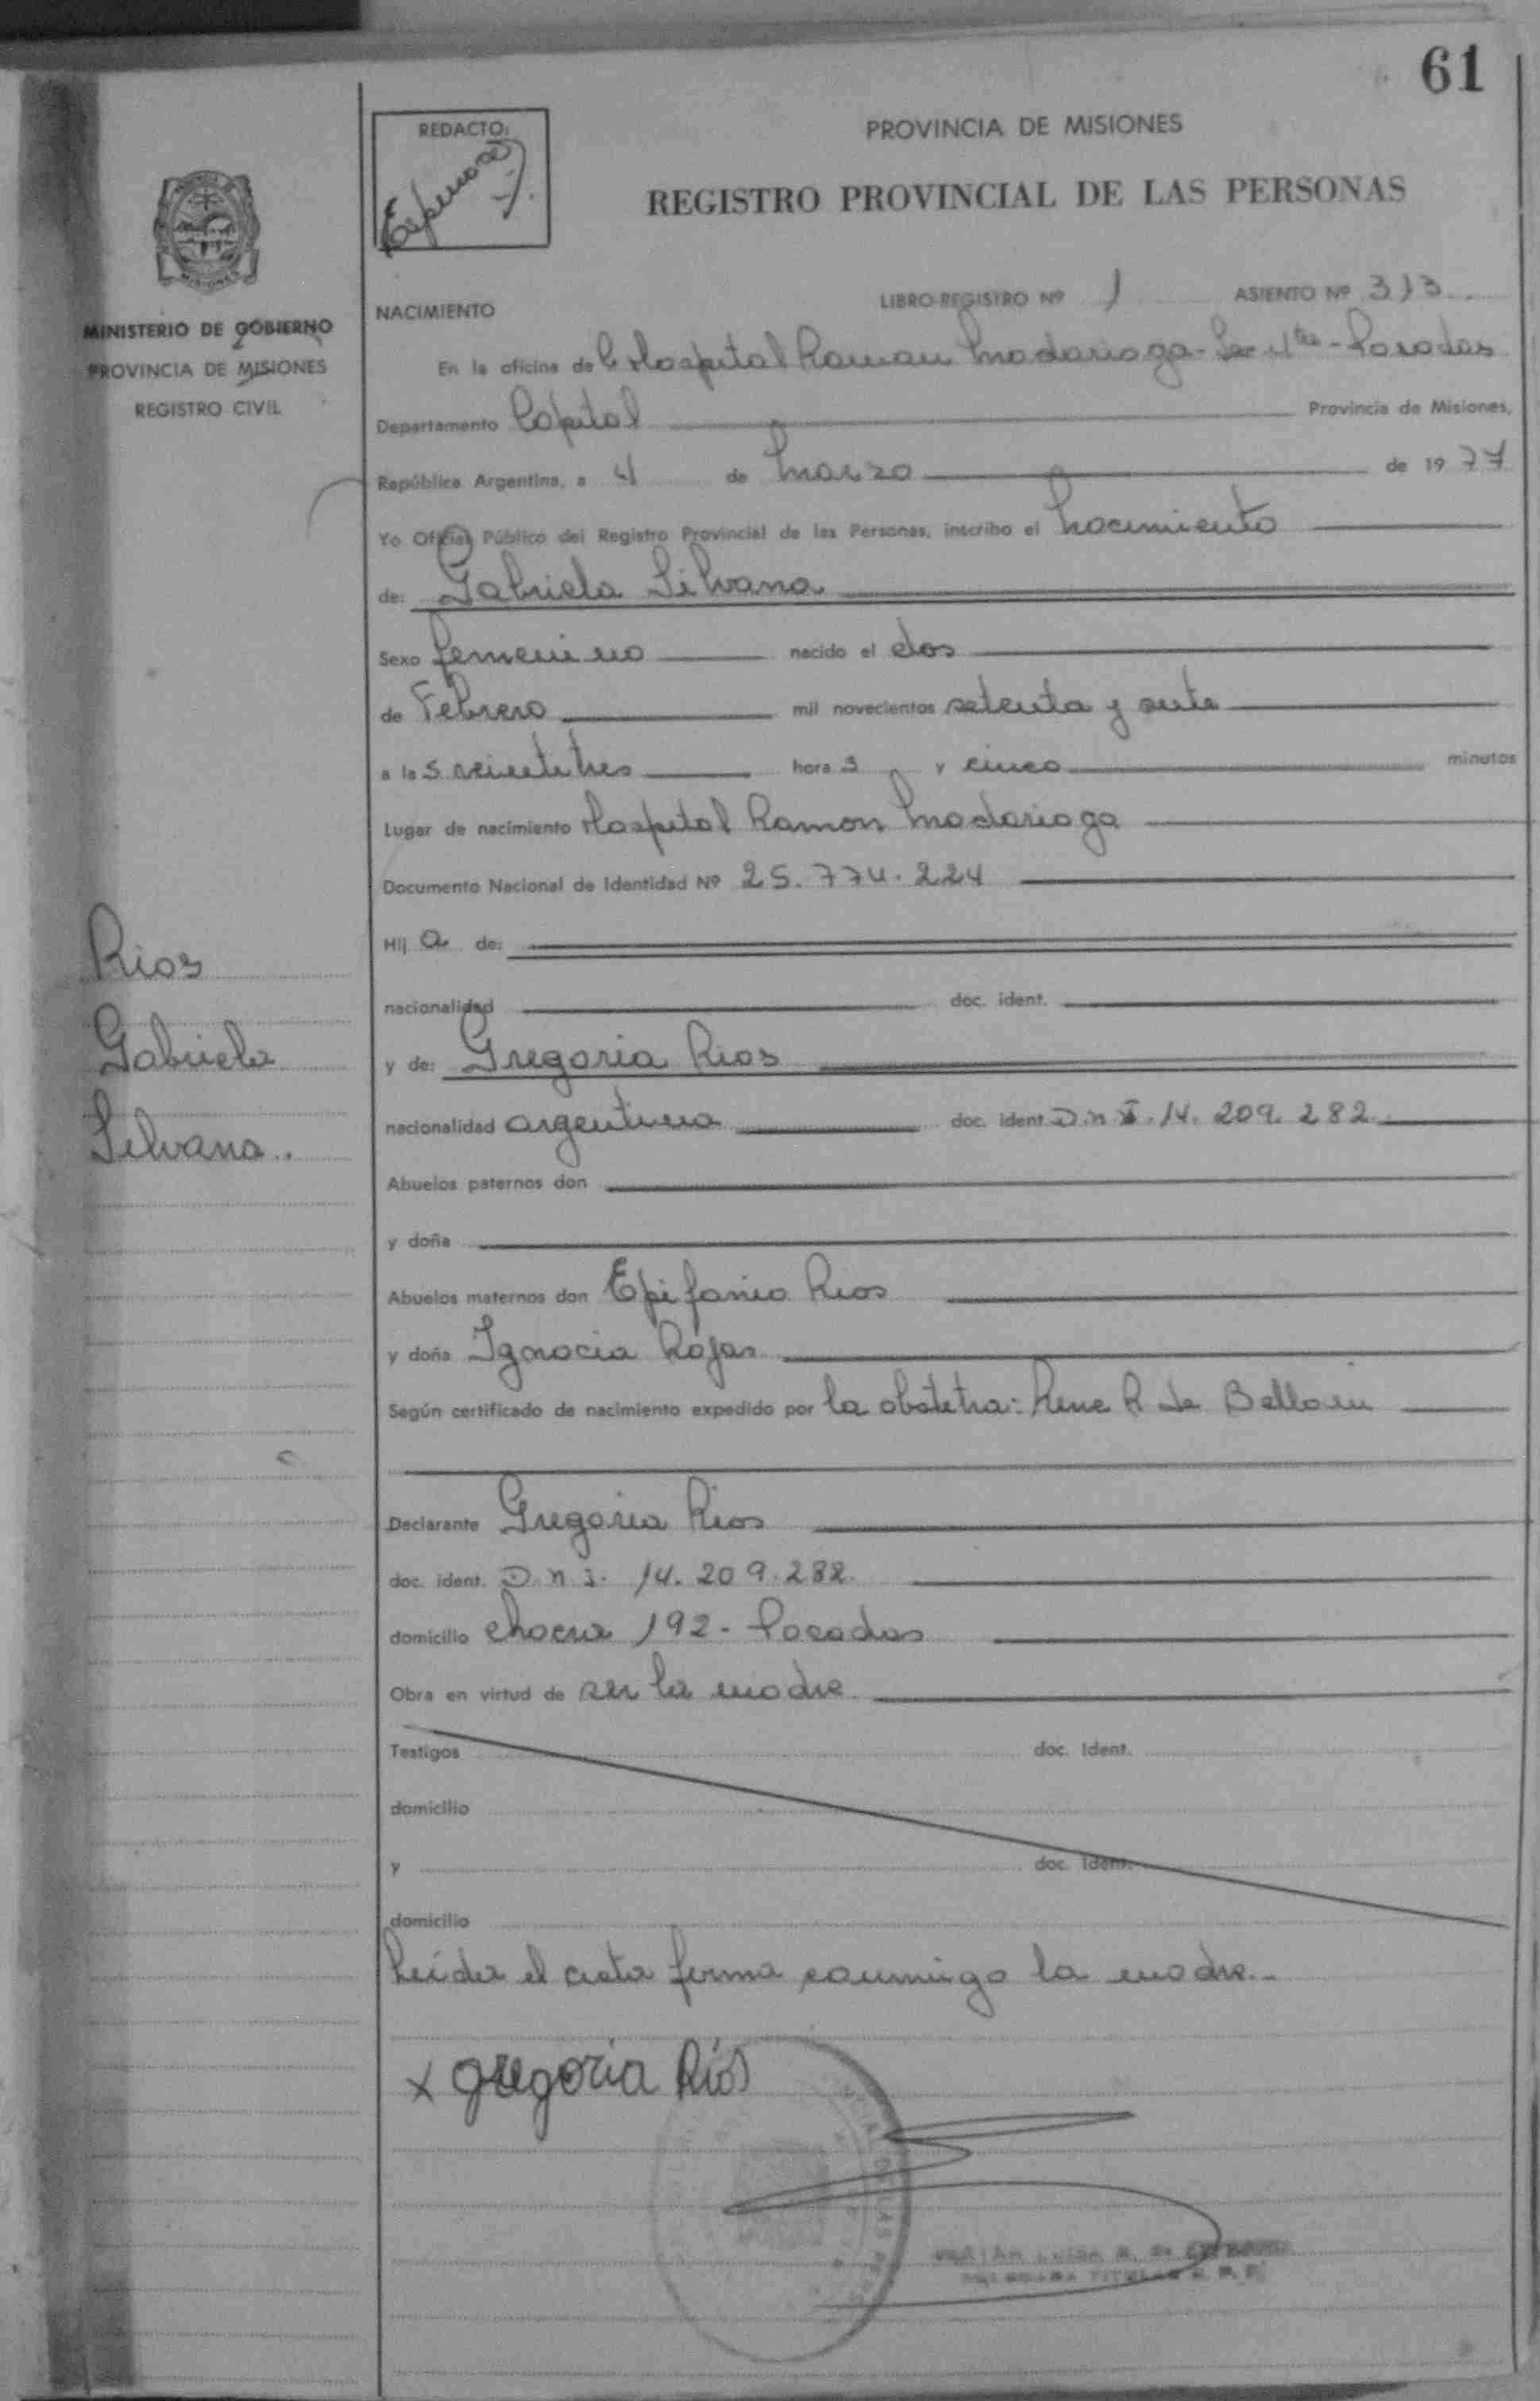 61
REDACTO:
PROVINCIA DE MISIONES
REGISTRO PROVINCIAL DE LAS PERSONAS
MISIONES
MINISTERIO DE GOBIERNO
PROVINCIA DE MISIONES
REGISTRO CIVIL
NACIMIENTO LIBRO-REGISTRO Nº 1 ASIENTO Nº 313
En la oficina de Hospital Ramon Madariaga - Posadas
Departamento Capital Provincia de Misiones,
República Argentina, a 4 de Marzo de 1977
Yo Oficial Público del Registro Provincial de las Personas, inscribo el Nacimiento
de: Gabriela Silvana
Sexo femenino nacido el dos
de Febrero mil novecientos setenta y siete
a las veintitres horas y cinco minutos
Lugar de nacimiento Hospital Ramon Madariaga
Documento Nacional de Identidad Nº 25.774.224
Hija de:
nacionalidad doc. ident.
y de: Gregoria Rios
nacionalidad argentina doc. ident D.n.I. 14.209.282
Abuelos paternos don
y doña
Abuelos maternos don Epifanio Rios
y doña Ignacia Rojas
Según certificado de nacimiento expedido por la obstetra: Rene R de
Declarante Gregoria Rios
doc. ident. D.n.i. 14.209.282
domicilio chacra 192 - Posadas
Obra en virtud de ser la madre
Testigos doc. Ident.
domicilio
y doc. Ident.
domicilio
Leida el acta firma conmigo la madre.-
x gregoria Ríos
Rios
Gabriela
Silvana.